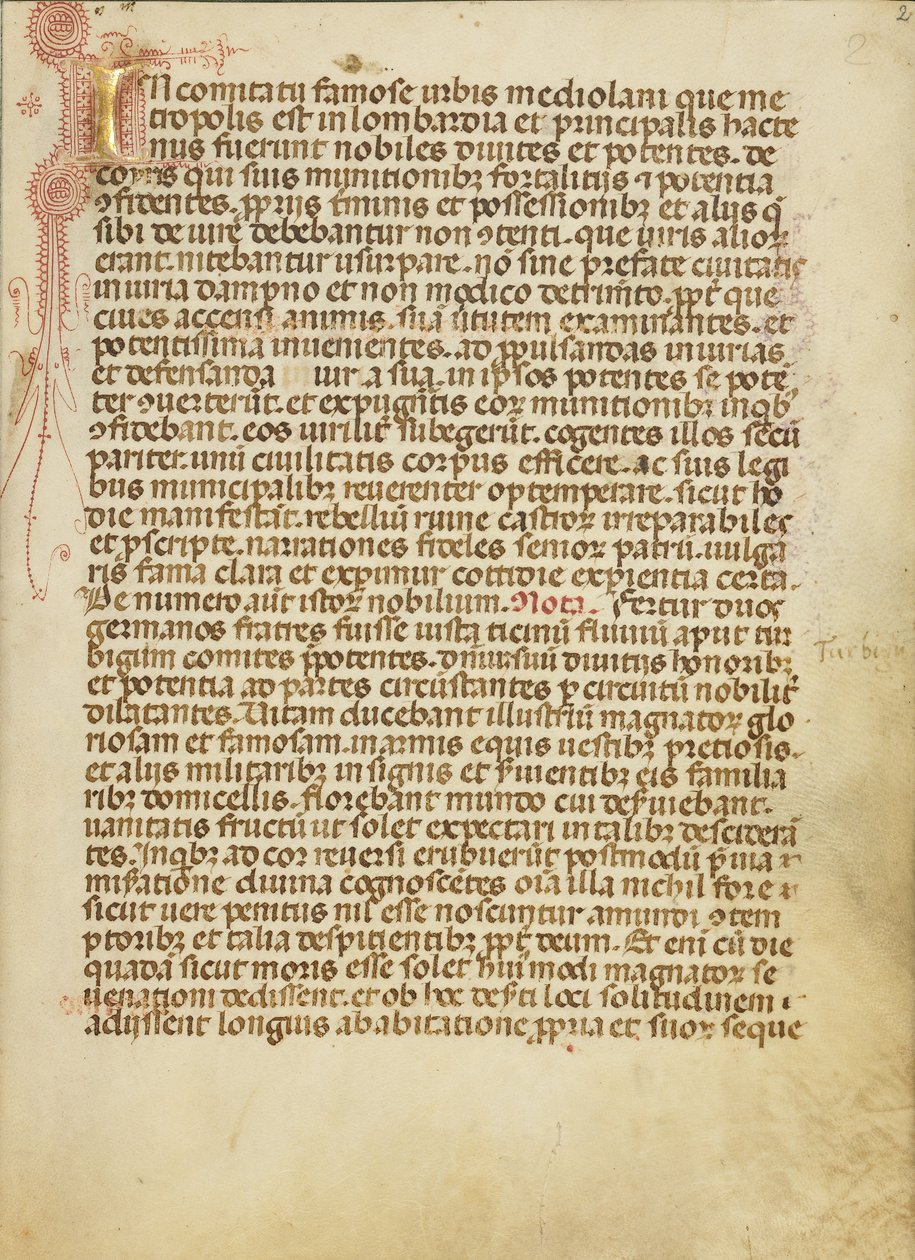 2
2
IN comitatu famose urbis mediolani que me
tropolis est in lombardia et principalis hacte
nus fuerunt nobiles divites et potentes. de
qui suis munitionibꝫ fortalitijs ⁊ potentia
ꝯfidentes. ꝓprijs t̃minis et possessionibꝫ et alijs q̃
sibi de iure debebantur non ꝯtenti. que iuris alioꝝ
erant. nitebantur usurpare. nõ sine prefate civitatis
iniuria dampno et non modico detrim̃to. ꝓpt̃ que
cives accensi animis. suã ṽtutem examinantes. et
potentissimã invenientes. ad ꝓpulsandas iniurias
et defensanda iura sua. in ip̃sos potentes se potẽ
ter ꝯverterũt. et expugn̄tis eoꝝ munitionibꝫ in qͥbꝫ
ꝯfidebant. eos virilit̃ subegerũt. cogentes illos secũ
pariter. unũ civilitatis corpus efficere. ac suis legi
bus municipalibꝫ reverenter optemperare. sicut ho
die manifestãt. rebelliũ ruine castroꝝ irreparabiles
et p̃scripte. narrationes fideles senioꝝ patrũ. vulga
ris fama clara et exp̃imur cottidie exꝑientia certa.
De numero aũt istoꝝ nobilium. Nota. Fertur duos
germanos fratres fuisse iusta ticinũ fluviũ aput tur
bigum comites p̃potentes. divitijs honoribꝫ
Turbigũ
et potentia ad partes circũstantes ꝑ circuitũ nobilit̃
dilatantes. Vitam ducebant illustriũ magnatoꝝ glo
riosam et famosam. in armis equis vestibꝫ pretiosis.
et alijs militaribꝫ insignis et s̃vientibꝫ eis familia
ribꝫ domicellis. florebant mundo cui des̃viebant.
vanitatis fructũ ut solet expectari in talibꝫ desiderã
tes. In qͥbꝫ ad cor reversi erubuerũt postmodũ p̃via
mis̃atione divina cognoscẽtes oĩa illa nichil fore
sicut vere penitus nil esse noscuntur a mundi ꝯtem
ptoribꝫ et talia despicientibꝫ ꝓpt̃ deum. Et eni cũ die
quadã sicut moris esse solet hui᷒modi magnatoꝝ se
venationi dedissent. et ob hoc des̃ti loci solitudinem
adijssent longius ab abitatione ꝓpria et suoꝝ seque